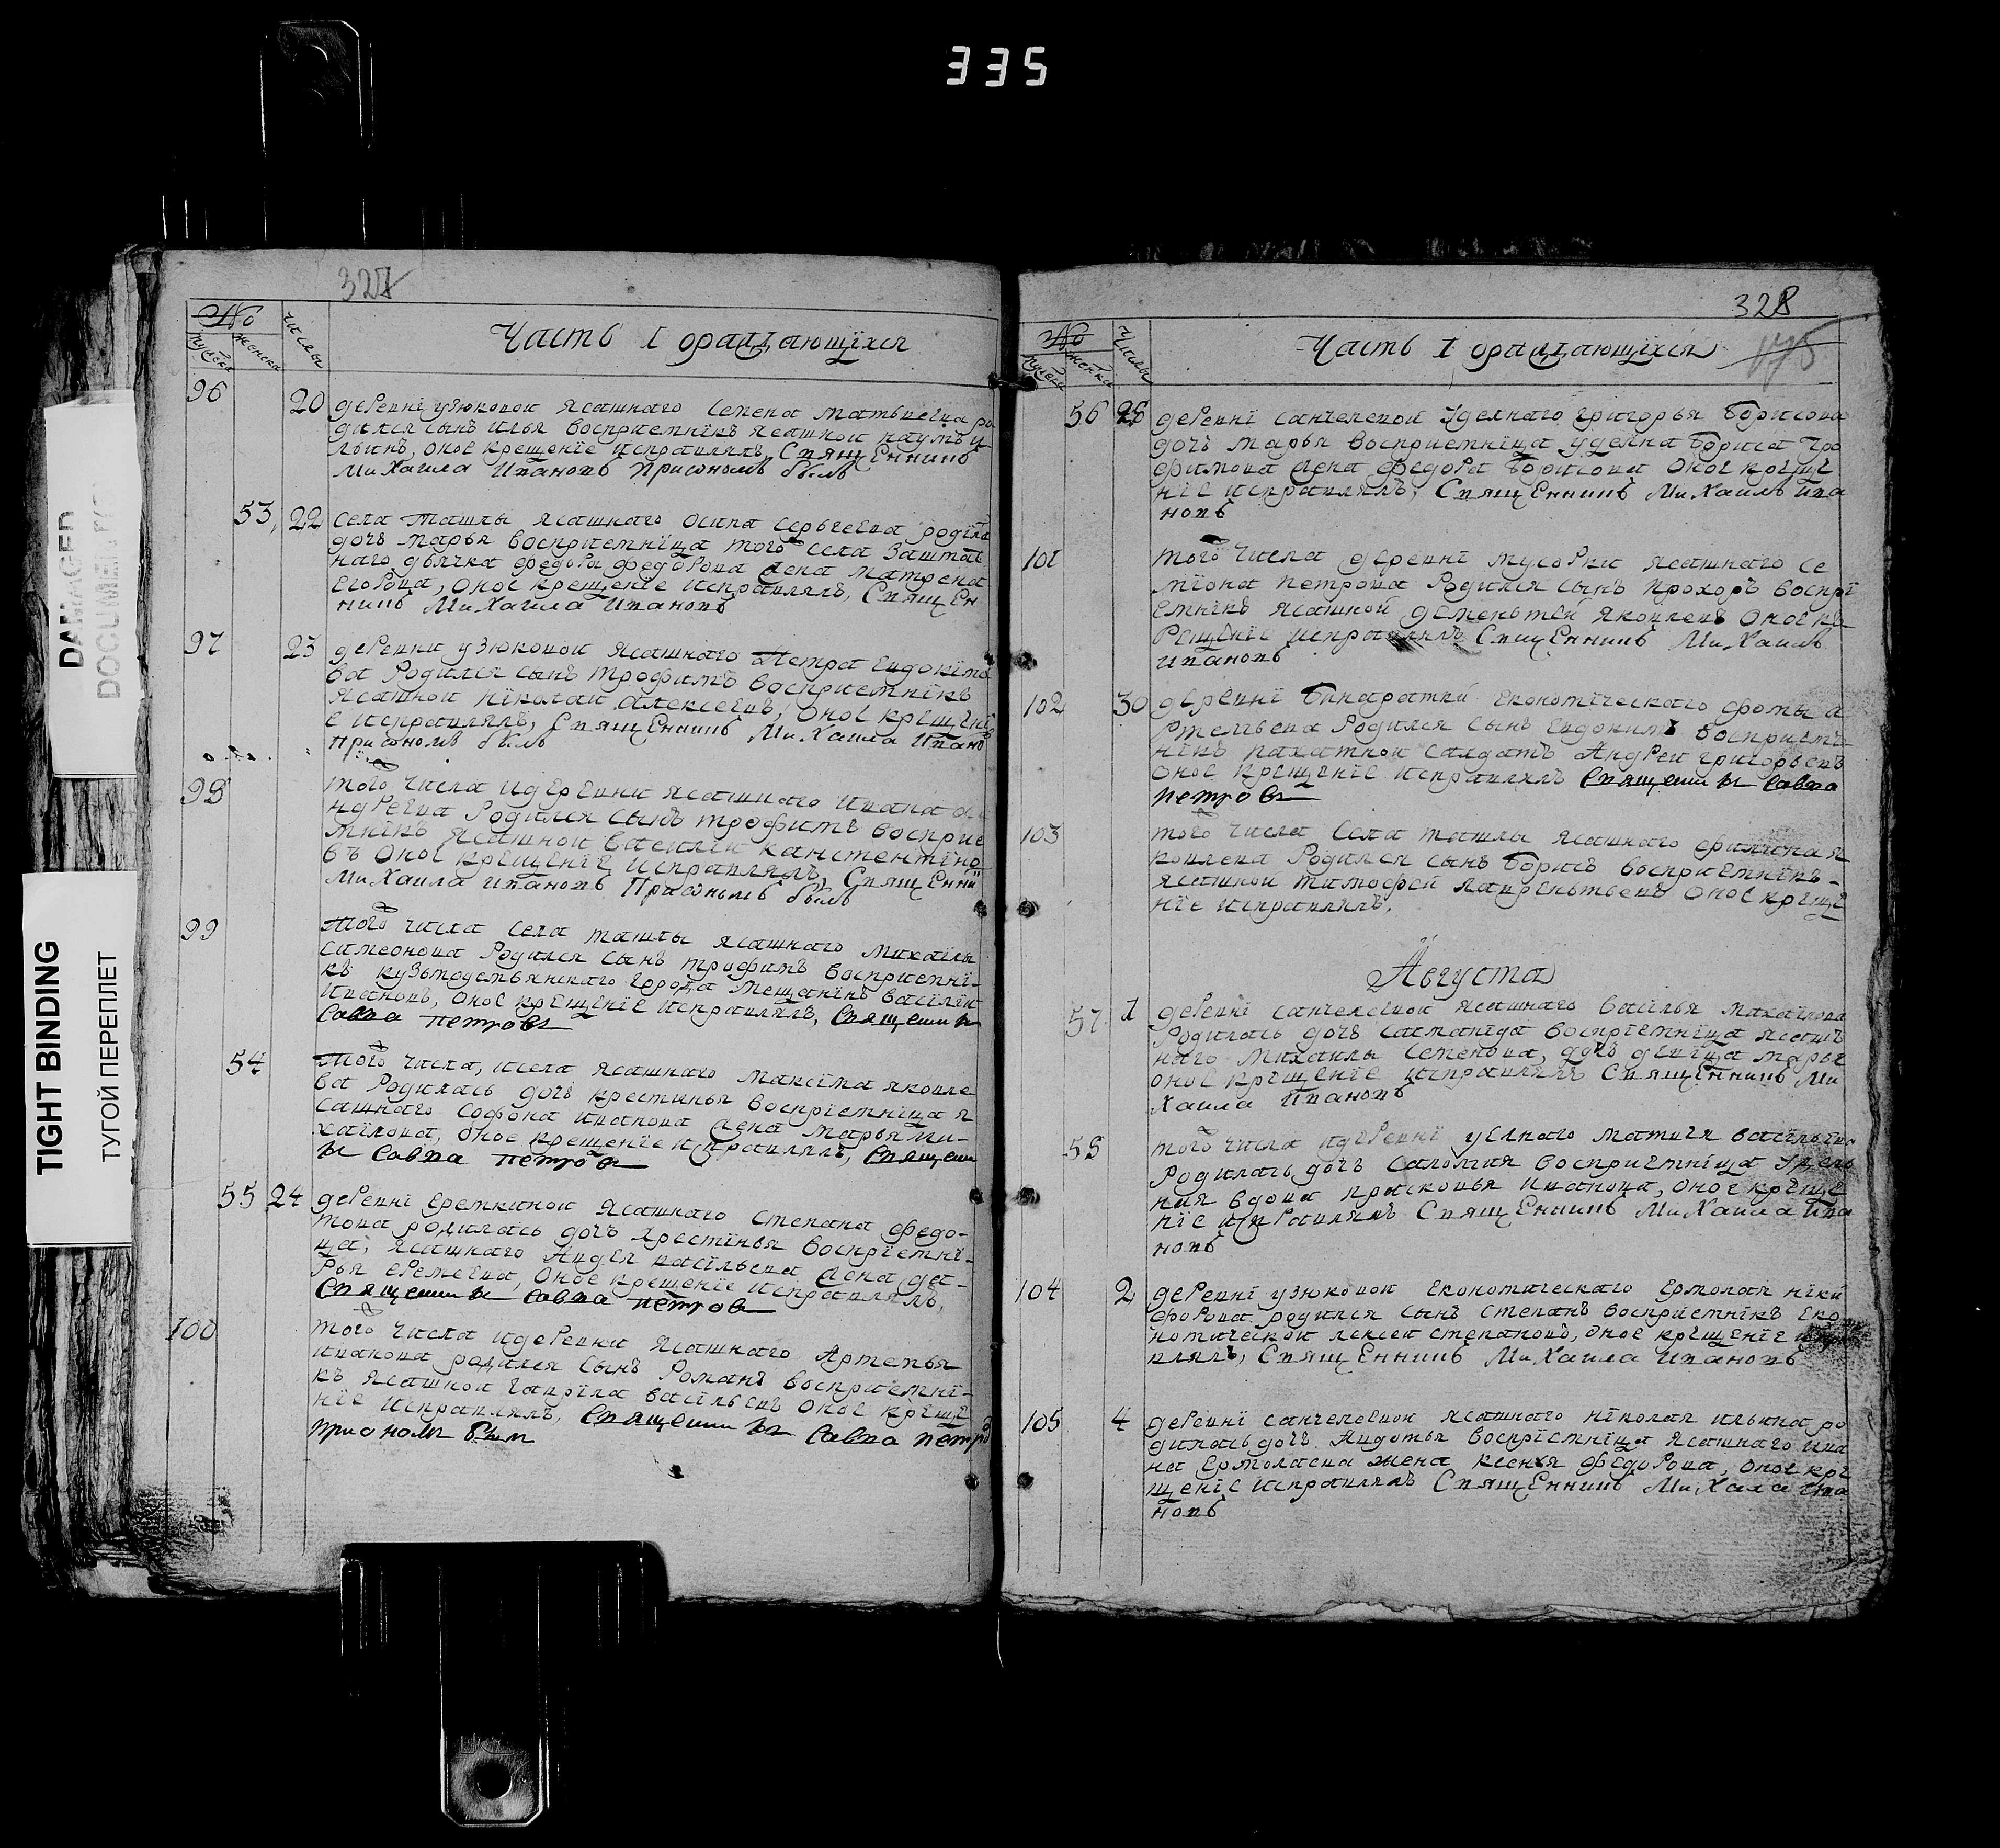 335
DAMAGED
TIGHT BINDING
ТУГОЙ ПЕРЕПЛЕТ
327
№
мужеска
женска
числы
Часть I ораждающїхся
96 20 деревнї узюковои ясашнаго Семена матвиева ро
дился сынъ илья восприемнїкъ ясашнои наумъ и
льинъ, оное крещение исправлялъ, Священникъ
Михаила Ивановъ Присономъ былъ
53 22 села ташлы ясашнаго осипа сергеева родїла
дочъ марья восприемнїца того села заштат
наго дьячка федора федорова жена матрена
Егорова, оное крещенїе исправлялъ, Священ
никъ Михаила Ивановъ
97 23 деревни узюковои ясашнаго Петра евдокїмо
ва Родился сынъ трофимъ восприемнїкъ
ясашнои нїколаи алексеевъ, оное крещенї
е исправлялъ, Священникъ Михаила Ивано
присономъ былъ
98 того числа идеревни ясашнаго ивана а
ндреева Родился сынъ трофимъ восприе
мнїкъ ясашнои василїи канстентїно
въ оное крещенїе исправлялъ, Священнї
Михаила ивановъ Присономъ былъ
99 того числа села ташлы ясашнаго михаилы
симеонова Родился сынъ трофимъ восприемнї-
къ кузьмодемьянскаго города мещанїнъ васїлїи
ивановъ, оное крещенїе исправлялъ, священникъ
савва петровъ
54 того числа, исела ясашнаго максїма яковле
ва Родилась дочъ крестинья восприемнїца я
сашнаго софона иванова жена марья ми-
хаїлова, оное крещенїе исправлялъ, священни
къ савва петровъ
55 24 деревнї еремкинои ясашнаго степана федо-
това родилась дочъ хрестїнья восприемнї-
ца, ясашнаго васїльева жена да-
рья еремеева, оное крещенїе исправлялъ,
священникъ савва петровъ
100 того числа идеревни ясашнаго Артемья
иванова родился сынъ Романъ восприемнї-
къ ясашнои гаврїла васїльевъ оное креще
нїе исправлялъ, священникъ савва петро
присономъ былъ
328
№
мужеска
женска
Числы
Часть I ораждающїхся
56 деревнї санчелеевой уделнаго григорья борисова
дочъ марья восприемнїца уделна бориса тро
фимова жена федора борисова оное креще
нїе исправлялъ, Священникъ Михаилъ ива
новъ
101 того числа деревнї мусорки ясашнаго се
мїона петрова Родился сынъ прохоръ воспрї
емнїкъ ясашной деменьтей яковлевъ оное к
рещенїе исправлялъ Священникъ Михаилъ
ивановъ
102 30 деревнї бинаратки економїческаго фомы а
ртемьева Родился сынъ евдокимъ восприем
нїкъ пахатнои салдатъ Андреи григорьевъ
оное крещенїе исправлялъ священникъ савва
петровъ
103 того числа села ташлы ясашнаго филипа я
ковлева Родился сынъ борисъ восприемнїкъ-
ясашной тимофей лаврентьевъ оное креще
нїе исправлялъ,
Августа
57 1 деревнї санчелеевои ясашнаго васїлья михаїлова
Родилась дочъ саманїда восприемнїца ясашъ
наго михаилы семенова, дочъ девїца марья
оное крещенїе исправлялъ Священникъ Ми
хаила Ивановъ
58 того числа идеревнї матвея васїльева
Родилась дочъ саломия восприемнїца удель
ная вдова прасковья иванова, оное креще
нїе исправлялъ Священникъ Михаила ива
новъ
104 2 деревнї узюковои економическаго ермолая нїки
форова родился сынъ степанъ восприемнїкъ еко
номическои лексеи степановъ, оное крещенїе
влялъ, Священникъ Михаила ивановъ
105 4 деревнї санчелеевои ясашнаго нїколая ильина ро
дилась дочъ Авдотья восприемнїца ясашнаго ива
на ермолаева жена ксенья федорова, оное кре
щенїе исправлялъ Священникъ Михаила ива
новъ